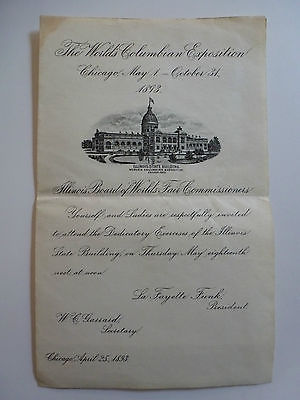 The World's Columbian Exposition
Chicago, May 1 – October 31,
1893.
ILLINOIS STATE BUILDING,
WORLD'S COLUMBIAN EXPOSITION
Illinois Board of World's Fair Commissioners
Yourself and Ladies are respectfully invited
to attend the Dedicatory Exercises of the Illinois
State Building, on Thursday May eighteenth
next at noon
La Fayette Funk,
President.
W. C. Garrard,
Secretary.
Chicago, April 25, 1893.